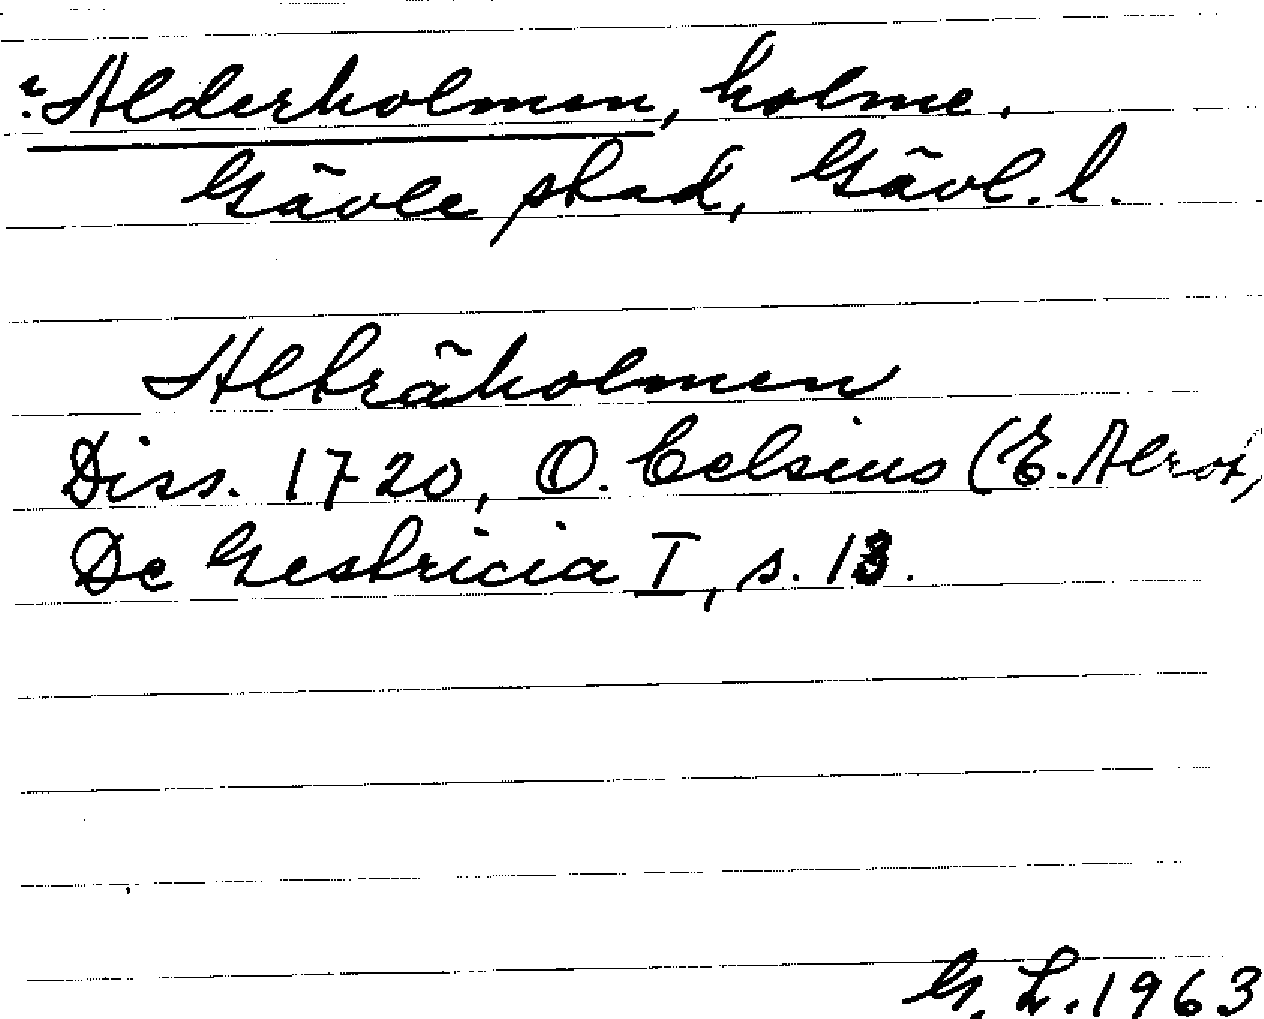 ? Alderholmen, holme.
Gävle stad, Gävl. l.
Alträholmen
Diss. 1720, O. Celsius (E. Alrot,
De Gestricia I, s. 13.
G. L. 1963